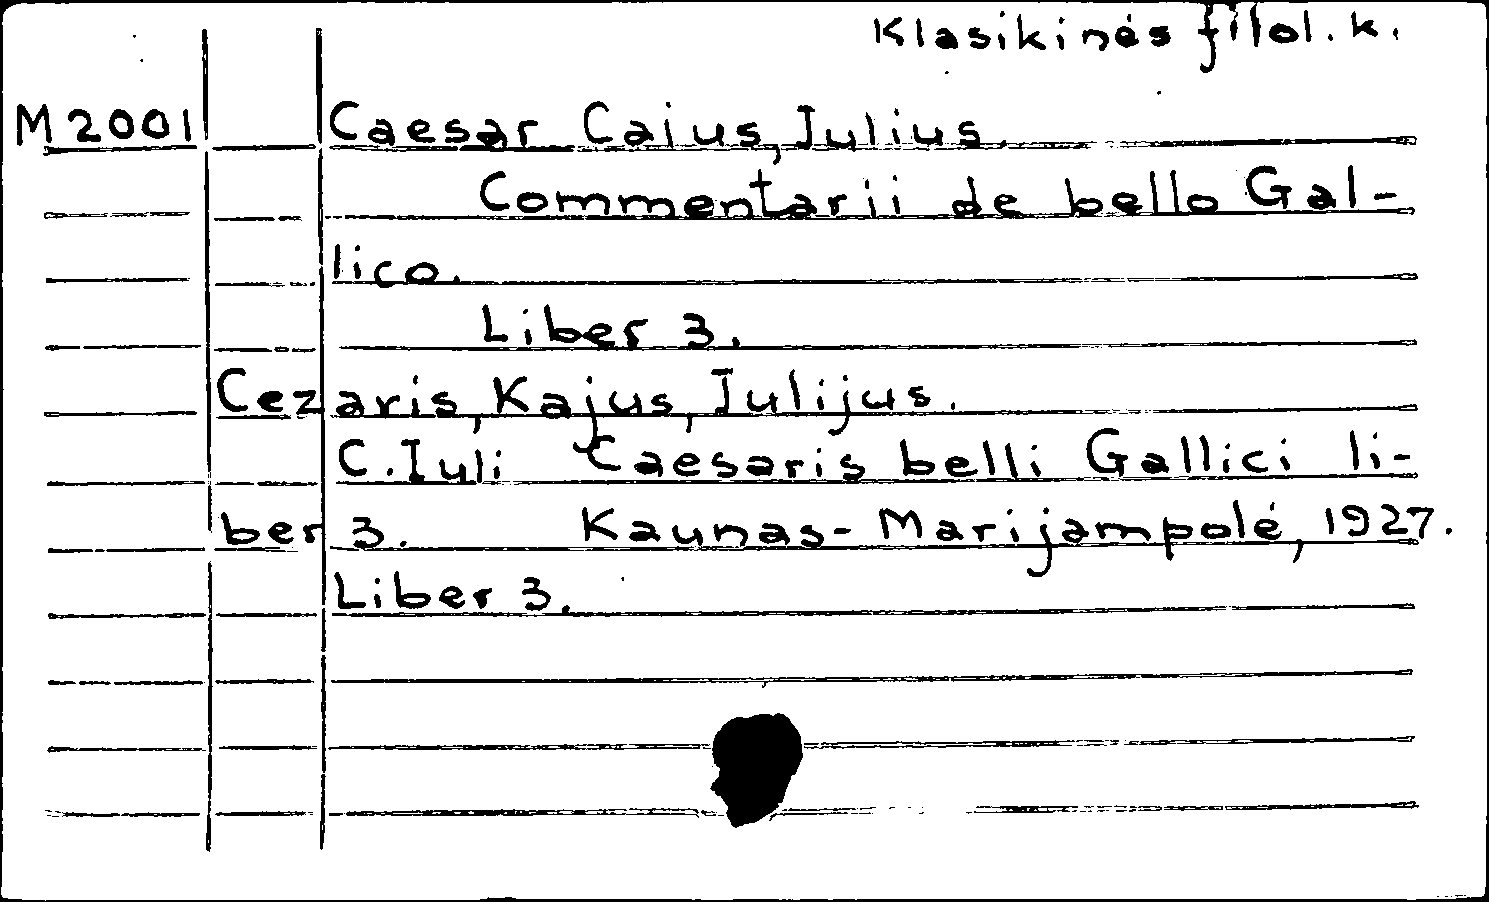 Klasikinės filol. k.
M2001 Caesar Caius, Julius.
Commentarii de bello Gal-
lico.
Liber 3.
Cezaris, Kajus, Julijus.
C. Iuli Caesaris belli Gallici li-
ber 3. Kaunas-Marijampolė, 1927.
Liber 3.